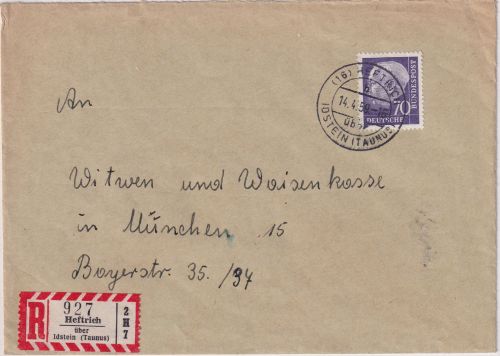 (16) HEFTRICH
14.4.59
über
IDSTEIN (TAUNUS)
70
DEUTSCHE
BUNDESPOST
An
Witwen und Waisenkasse
in München 15
Bayerstr. 35./37
R
927
Heftrich
über
Idstein (Taunus)
2
H
7